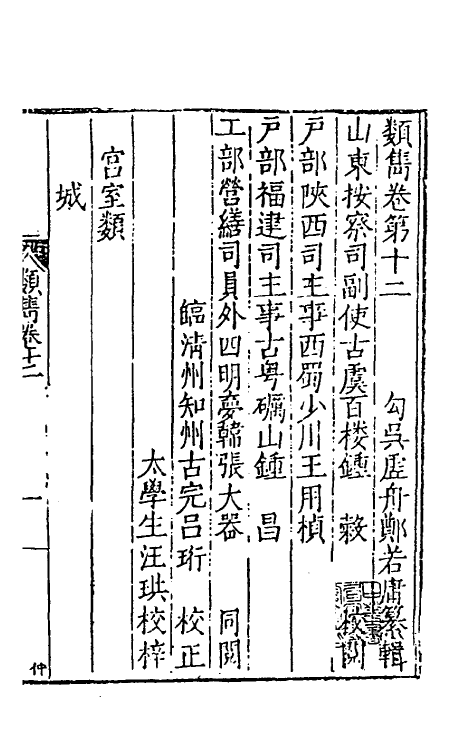 類雋卷第十二　勾吳虛舟鄭若庸纂輯
山東按察司副使古虞百楼鍾　穀　校閱
戶部陜西司主事西蜀少川王用楨
戶部福建司主事古粵礪山鍾　昌
工部營繕司員外四明夢韓張大器　同閱
臨淸州知州古完呂珩　校正
太學生汪珙校梓
宮室類
城
類雋卷十二
一
仲